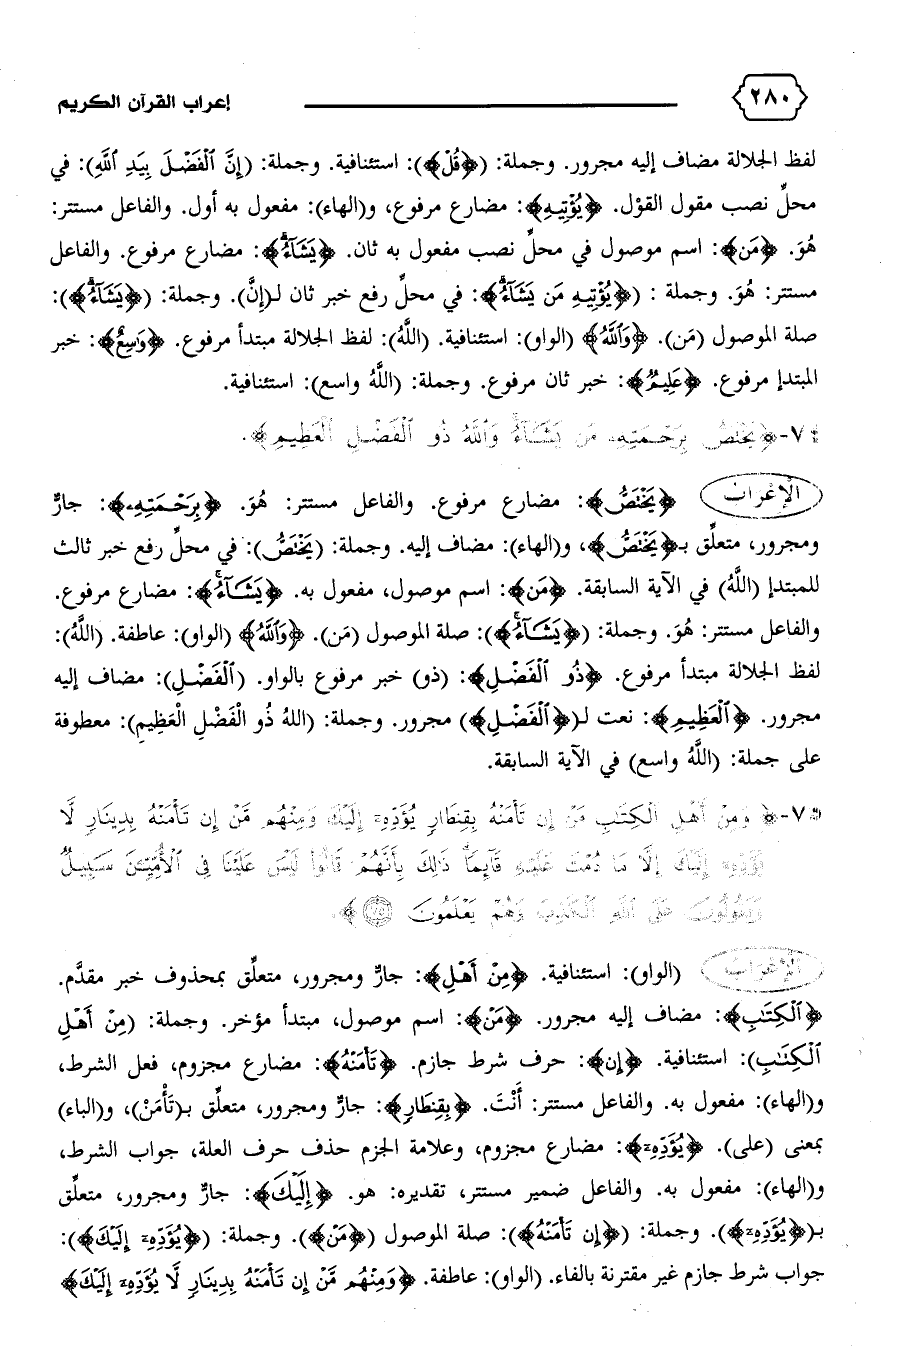 ٢٨٠ إعراب القرآن الكريم
لفظ الجلالة مضاف إليه مجرور. وجملة: (﴿قُلْ﴾): استئنافية. وجملة: (إِنَّ ٱلْفَضْلَ بِيَدِ ٱللَّهِ): في
محلِّ نصب مقول القوْل. ﴿يُؤْتِيهِ﴾: مضارع مرفوع، و(الهاء): مفعول به أول. والفاعل مستتر:
هُوَ. ﴿مَن﴾: اسم موصول في محلِّ نصب مفعول به ثان. ﴿يَشَآءُ﴾: مضارع مرفوع. والفاعل
مستتر: هُوَ. وجملة : (﴿يُؤْتِيهِ مَن يَشَآءُ﴾: في محلِّ رفع خبر ثان لـ(إنَّ). وجملة: (﴿يَشَآءُ﴾):
صلة الموصول (مَن). ﴿وَٱللَّهُ﴾ (الواو): استئنافية. (اللَّهُ): لفظ الجلالة مبتدأ مرفوع. ﴿وَٰسِعٌ﴾: خبر
المبتدإ مرفوع. ﴿عَلِيمٌ﴾: خبر ثان مرفوع. وجملة: (اللَّهُ واسع): استئنافية.
٧٤-﴿يَخْتَصُّ بِرَحْمَتِهِۦ مَن يَشَآءُ وَٱللَّهُ ذُو ٱلْفَضْلِ ٱلْعَظِيمِ﴾.
الإعْرَاب ﴿يَخْتَصُّ﴾: مضارع مرفوع. والفاعل مستتر: هُوَ. ﴿بِرَحْمَتِهِۦ﴾: جارٌّ
ومجرور، متعلِّق بـ﴿يَخْتَصُّ﴾، و(الهاء): مضاف إليه. وجملة: (يَخْتَصُّ): في محلِّ رفع خبر ثالث
للمبتدإ (اللَّهُ) في الآية السابقة. ﴿مَن﴾: اسم موصول، مفعول به. ﴿يَشَآءُ﴾: مضارع مرفوع.
والفاعل مستتر: هُوَ. وجملة: (﴿يَشَآءُ﴾): صلة الموصول (مَن). ﴿وَٱللَّهُ﴾ (الواو): عاطفة. (اللَّهُ):
لفظ الجلالة مبتدأ مرفوع. ﴿ذُو ٱلْفَضْلِ﴾: (ذو) خبر مرفوع بالواو. (ٱلْفَضْلِ): مضاف إليه
مجرور. ﴿ٱلْعَظِيمِ﴾: نعت لـ(﴿ٱلْفَضْلِ﴾) مجرور. وجملة: (اللهُ ذُو الْفَضْلِ الْعَظِيمِ): معطوفة
على جملة: (اللَّهُ واسع) في الآية السابقة.
٧٥-﴿ وَمِنْ أَهْلِ ٱلْكِتَٰبِ مَنْ إِن تَأْمَنْهُ بِقِنطَارٍ يُؤَدِّهِۦٓ إِلَيْكَ وَمِنْهُم مَّنْ إِن تَأْمَنْهُ بِدِينَارٍ لَّا
يُؤَدِّهِۦٓ إِلَيْكَ إِلَّا مَا دُمْتَ عَلَيْهِ قَآئِمًا ذَٰلِكَ بِأَنَّهُمْ قَالُوا۟ لَيْسَ عَلَيْنَا فِى ٱلْأُمِّيِّـۧنَ سَبِيلٌ
وَيَقُولُونَ عَلَى ٱللَّهِ ٱلْكَذِبَ وَهُمْ يَعْلَمُونَ ٧٥ ﴾.
الإعْرَاب (الواو): استئنافية. ﴿مِنْ أَهْلِ﴾: جارٌّ ومجرور، متعلِّق بمحذوف خبر مقدَّم.
﴿ٱلْكِتَٰبِ﴾: مضاف إليه مجرور. ﴿مَنْ﴾: اسم موصول، مبتدأ مؤخر. وجملة: (مِنْ أَهْلِ
ٱلْكِتَٰبِ): استئنافية. ﴿إِن﴾: حرف شرط جازم. ﴿تَأْمَنْهُ﴾: مضارع مجزوم، فعل الشرط،
و(الهاء): مفعول به. والفاعل مستتر: أَنْتَ. ﴿بِقِنطَارٍ﴾: جارٌّ ومجرور، متعلِّق بـ(تَأْمَنْ)، و(الباء)
بمعنى (على). ﴿يُؤَدِّهِۦٓ﴾: مضارع مجزوم، وعلامة الجزم حذف حرف العلة، جواب الشرط،
و(الهاء): مفعول به. والفاعل ضمير مستتر، تقديره: هو. ﴿إِلَيْكَ﴾: جارٌّ ومجرور، متعلِّق
بـ(﴿يُؤَدِّهِۦٓ﴾). وجملة: (﴿إِن تَأْمَنْهُ﴾): صلة الموصول (﴿مَنْ﴾). وجملة: (﴿يُؤَدِّهِۦٓ إِلَيْكَ﴾):
جواب شرط جازم غير مقترنة بالفاء. (الواو): عاطفة. ﴿وَمِنْهُم مَّنْ إِن تَأْمَنْهُ بِدِينَارٍ لَّا يُؤَدِّهِۦٓ إِلَيْكَ﴾